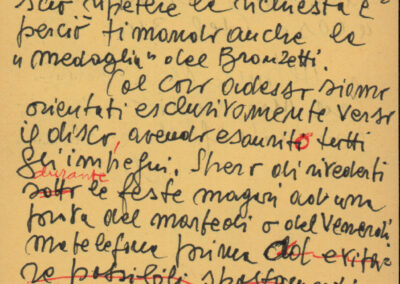 scio ripetere la richiesta e
perciò ti mando anche la
"medaglia" del Bronzetti.
Col coro adesso siamo
orientati esclusivamente verso
il disco, avendo esaurito tutti
gli impegni. Spero di rivederti
durante
sotto le feste magari ad una
prova del martedì o del Venerdì
ma telefona prima ad evita-
re possibili spostamenti